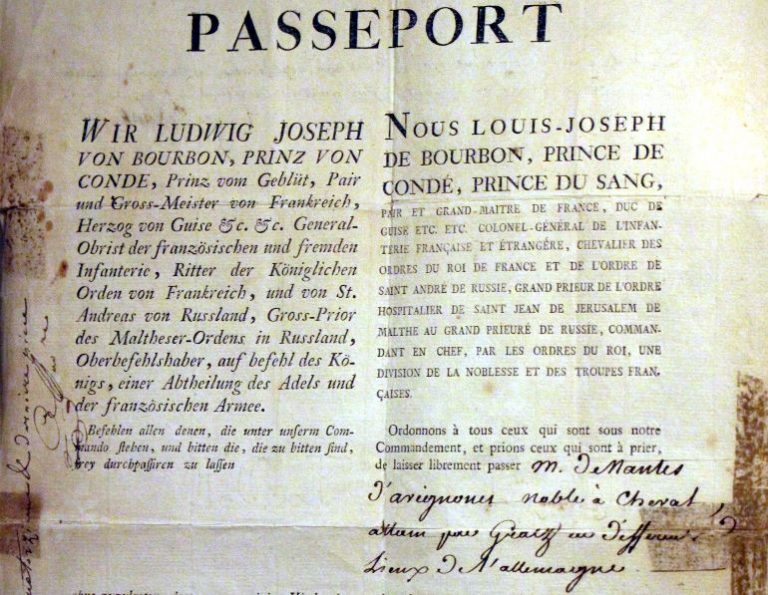 PASSEPORT
WIR LUDWIG JOSEPH
VON BOURBON, PRINZ VON
CONDE, Prinz vom Geblüt, Pair
und Gross-Meister von Frankreich,
Herzog von Guise &c. &c. General-
Obrist der französischen und fremden
Infanterie, Ritter der Königlichen
Orden von Frankreich, und von St.
Andreas von Russland, Gross-Prior
des Maltheser-Ordens in Russland,
Oberbefehlshaber, auf befehl des Kö-
nigs, einer Abtheilung des Adels und
der französischen Armee.
Befehlen allen denen, die unter unserm Com-
mando stehen, und bitten die, die zu bitten sind,
frey durchpassiren zu lassen
NOUS LOUIS-JOSEPH
DE BOURBON, PRINCE DE
CONDÉ, PRINCE DU SANG,
PAIR ET GRAND-MAITRE DE FRANCE, DUC DE
GUISE ETC. ETC. COLONEL-GÉNÉRAL DE L'INFAN-
TERIE FRANÇAISE ET ÉTRANGÈRE, CHEVALIER DES
ORDRES DU ROI DE FRANCE ET DE L'ORDRE DE
SAINT ANDRÉ DE RUSSIE, GRAND PRIEUR DE L'ORDRE
HOSPITALIER DE SAINT JEAN DE JERUSALEM DE
MALTHE AU GRAND PRIEURÉ DE RUSSIE, COMMAN-
DANT EN CHEF, PAR LES ORDRES DU ROI, UNE
DIVISION DE LA NOBLESSE ET DES TROUPES FRAN-
ÇAISES.
Ordonnons à tous ceux qui sont sous notre
Commandement, et prions ceux qui sont à prier,
de laisser librement passer M. de Nantes
D'avignonet noble à Cheval
allant par Gratz en different
Lieux de l'allemagne.